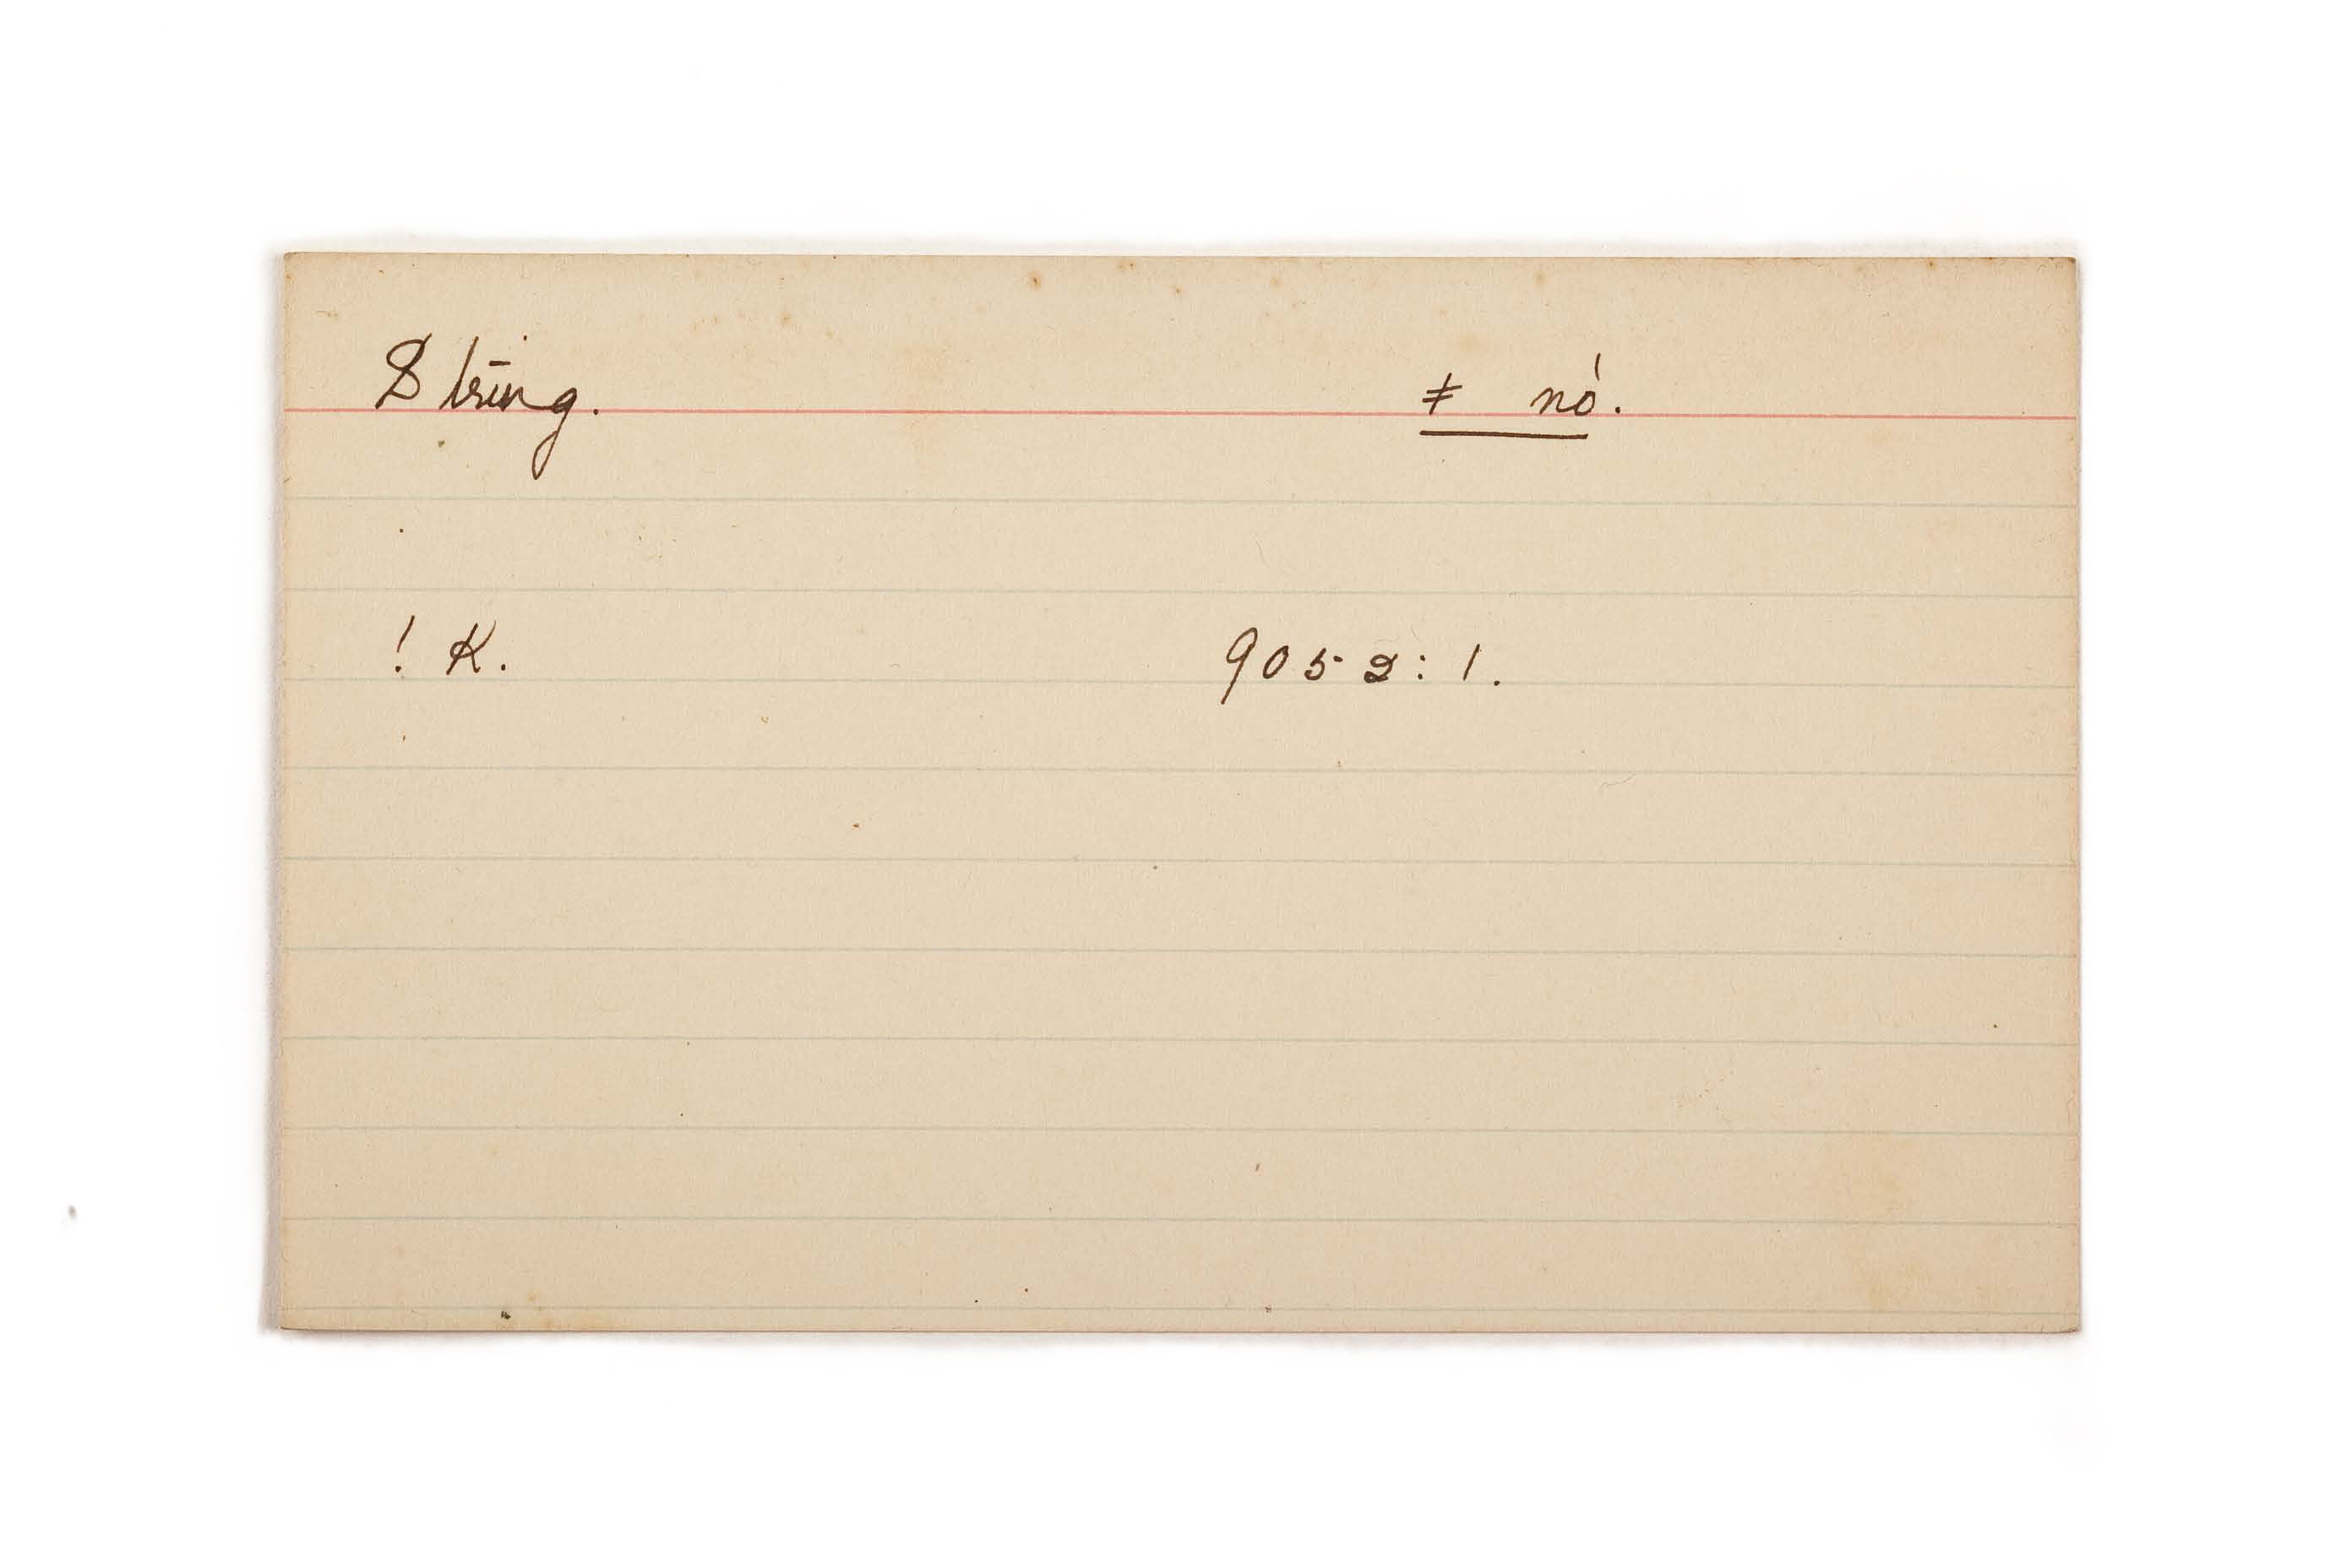 String. ǂ nó.
! K. 9052: 1.